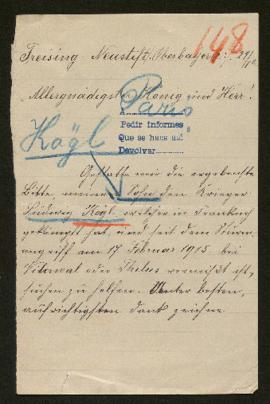 Freising Neustift, Oberbayern,
148
Allergnädigster König und Herr!
Paris
A
Pedir informes,
Que se haga así
Devolver
Kögl
Gestatte mir die ergebenste
Bitte meinen Sohn den Krieger
Ludwig Kögl, welcher in Frankreich
gekämpft hat, und seit dem Sturm-
angriff am 17 Februar 1915 bei
oder Thelus vermißt ist,
suchen zu helfen. Unter besten,
aufrichtigsten Dank zeichne